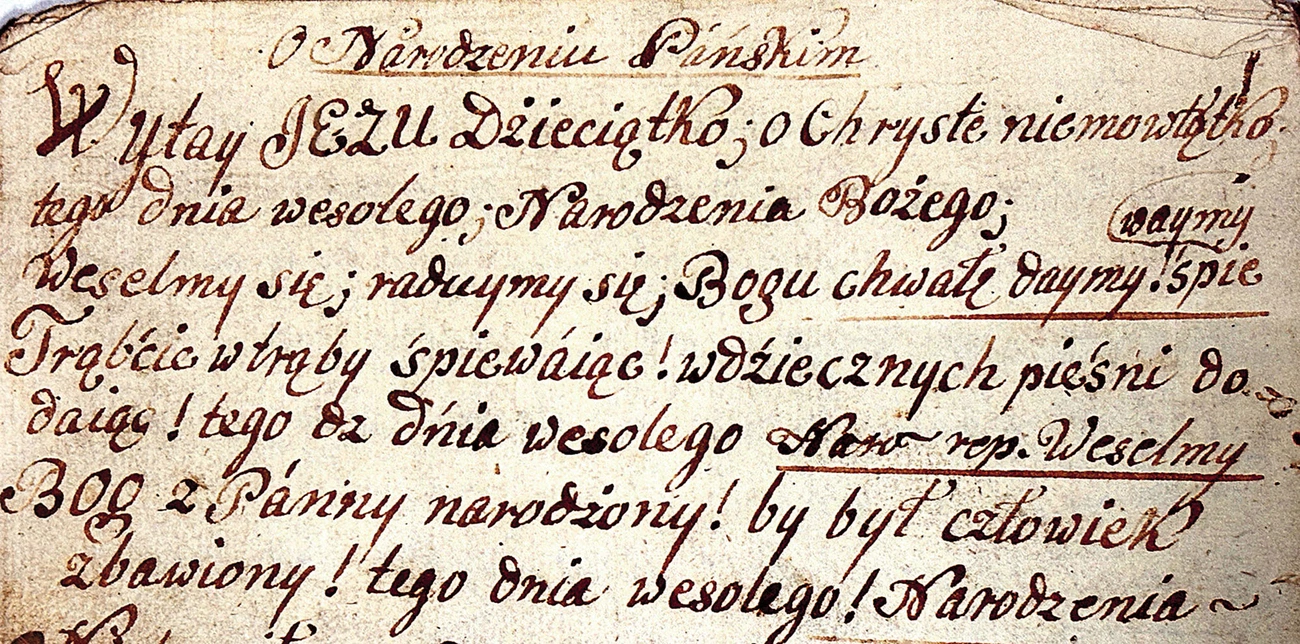 O Narodzeniu Páńskim
Wytay JEZU Dżieciątko; o Chryste niemowlątko;
tego dnia wesolego; Narodzenia Bożego;
waymy
Weselmy się; raduymy się; Bogu chwałę daymy! śpie
Trąbćie wtrąby śpiewáiąc! wdźiecznych pięśni do
daiąc! tego dz dńia wesolego Naro~ rep. Weselmy
BOG z Pánny narodzony! by był człowiek
zbawiony! tego dnia wesolego! Narodzenia ~